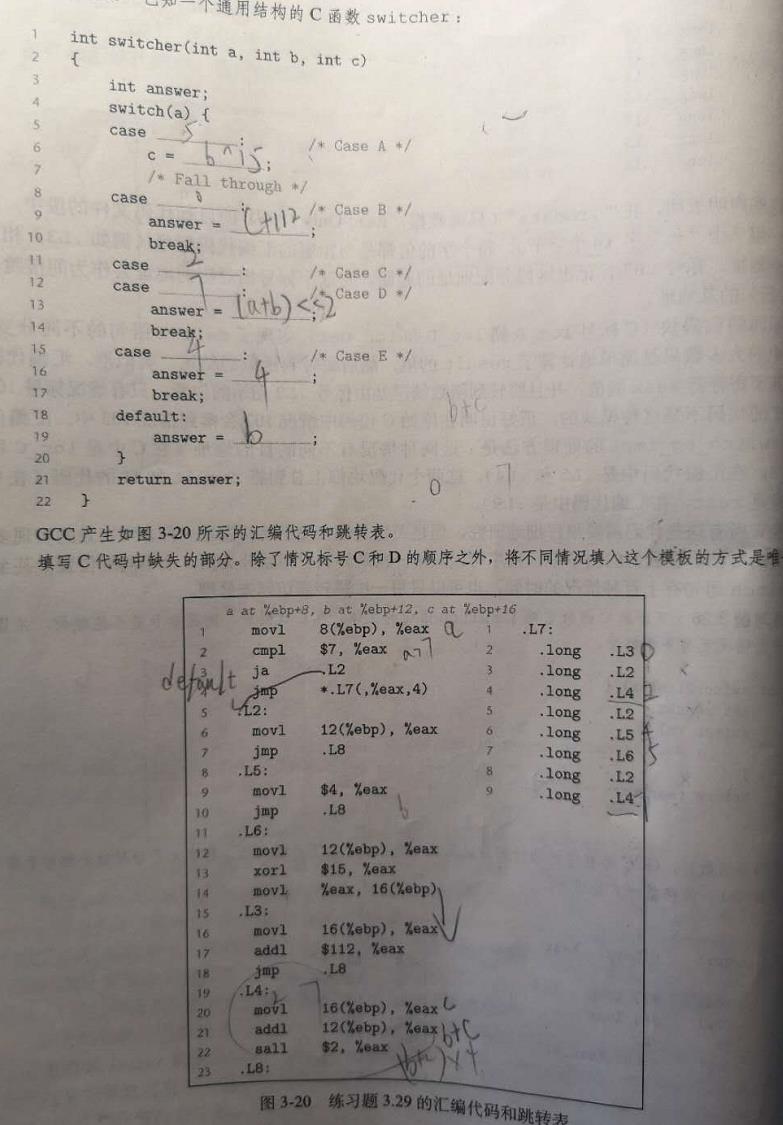 已知一个通用结构的 C 函数 switcher：
1 int switcher(int a, int b, int c)
2 {
3 int answer;
4 switch(a) {
5 case 5: /* Case A */
6 c = b^15;
7 /* Fall through */
8 case 0: /* Case B */
9 answer = C+112;
10 break;
11 case 2: /* Case C */
12 case 7: /* Case D */
13 answer = (a+b)<<2;
14 break;
15 case 4: /* Case E */
16 answer = 4;
17 break;
b+c
18 default:
19 answer = b;
20 }
21 return answer;
0 7
22 }
GCC 产生如图 3-20 所示的汇编代码和跳转表。
填写 C 代码中缺失的部分。除了情况标号 C 和 D 的顺序之外，将不同情况填入这个模板的方式是唯
a at %ebp+8, b at %ebp+12, c at %ebp+16
1 movl 8(%ebp), %eax a
2 cmpl $7, %eax a>7
3 ja .L2
default
4 jmp *.L7(,%eax,4)
5 .L2:
6 movl 12(%ebp), %eax
7 jmp .L8
8 .L5:
9 movl $4, %eax
10 jmp .L8 b
11 .L6:
12 movl 12(%ebp), %eax
13 xorl $15, %eax
14 movl %eax, 16(%ebp)
15 .L3:
16 movl 16(%ebp), %eax
17 addl $112, %eax
18 jmp .L8
19 .L4: 2 7
20 movl 16(%ebp), %eax C
21 addl 12(%ebp), %eax b+C
22 sall $2, %eax (b+c)×4
23 .L8:
1 .L7:
2 .long .L3 0
3 .long .L2
4 .long .L4 2
5 .long .L2
6 .long .L5 4
7 .long .L6 5
8 .long .L2
9 .long .L4 7
图 3-20 练习题 3.29 的汇编代码和跳转表